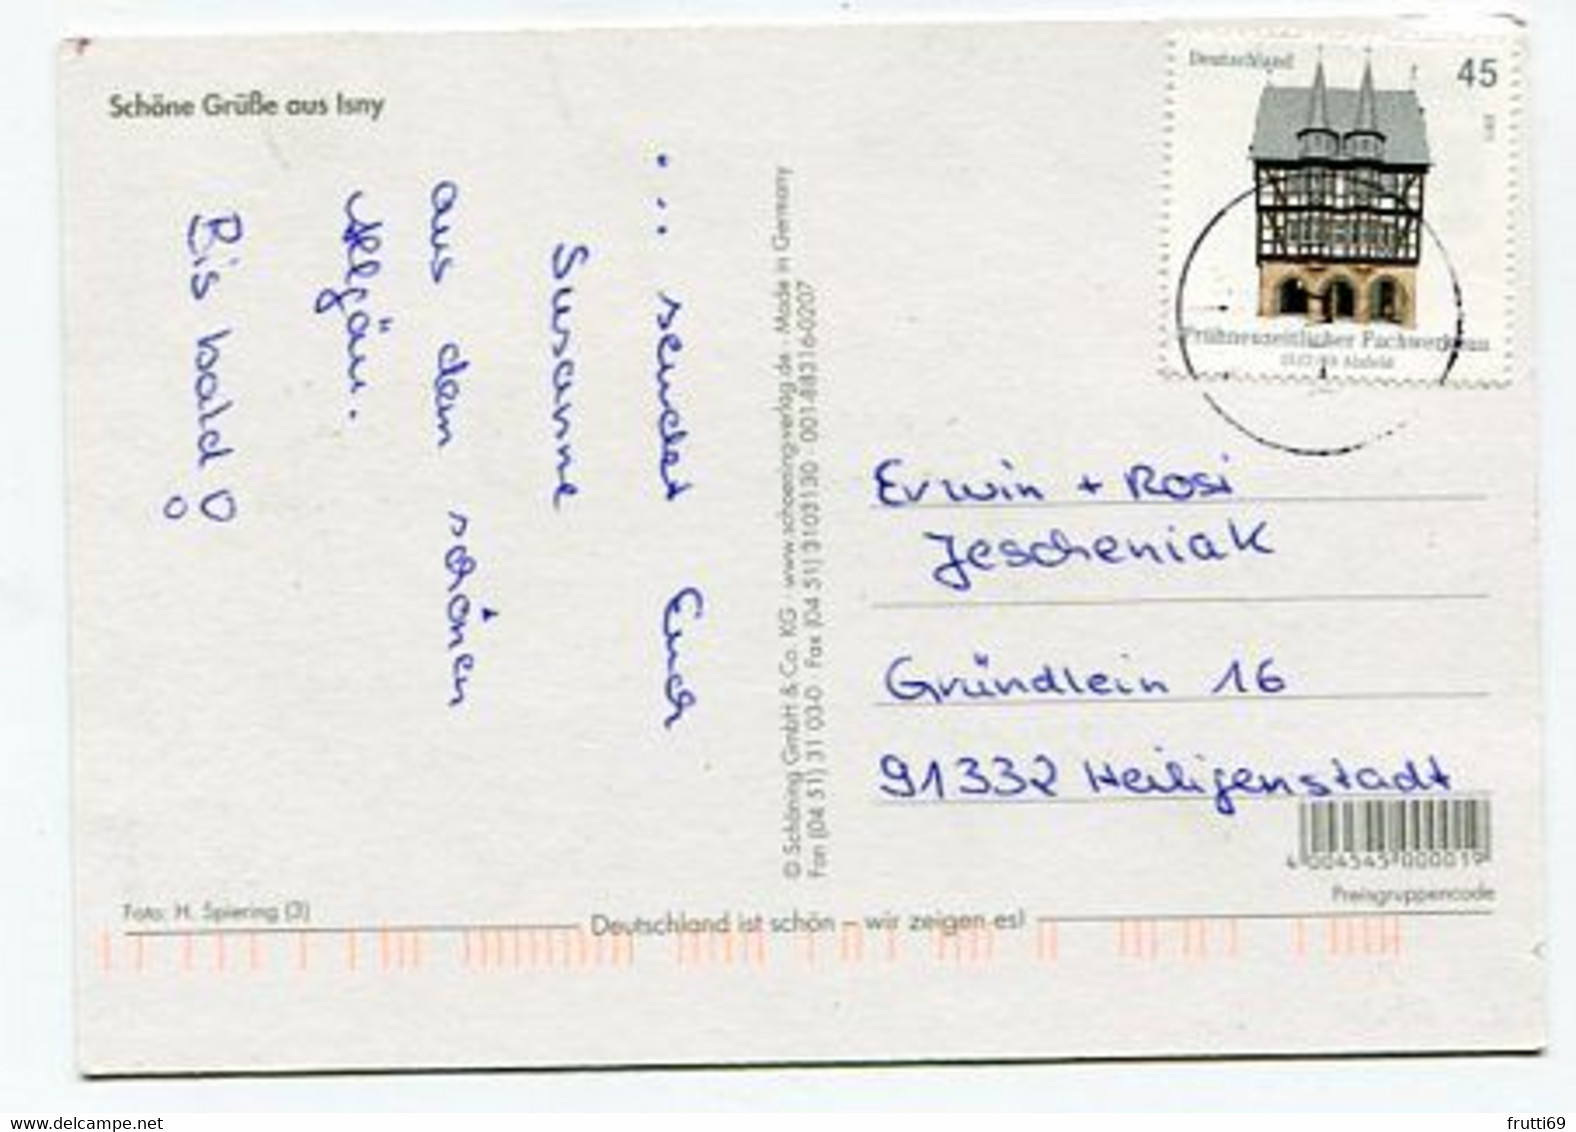 Schöne Grüße aus Isny
Deutschland
45
2011
... sendet Euch
Susanne
aus dem schönen
Allgäu.
Bis bald!
© Schöning GmbH & Co. KG · www.schoening-verlag.de · Made in Germany
Fon (04 51) 31 03-0 · Fax (04 51) 3103130 · 001-88316-0207
Frühneuzeitlicher Fachwerkbau
Alsfeld
Erwin + Rosi
Jescheniak
Gründlein 16
91332 Heiligenstadt
4 004545 000019
Preisgruppencode
Foto: H. Spiering (3)
Deutschland ist schön – wir zeigen es!
www.delcampe.net
frutti69